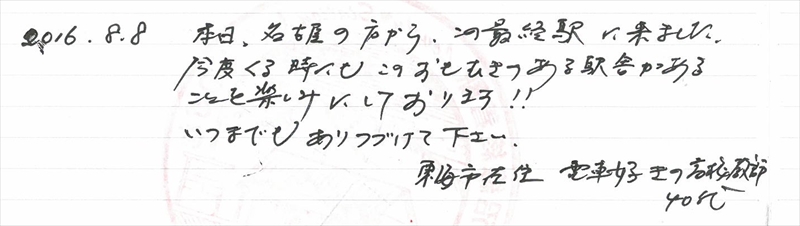 2016.8.8 本日、名古屋の方から、この最終駅に来ました。
今度くる時にも このおもむきのある駅舎がある
ことを楽しみにしております!!
いつまでも ありつづけて下さい。
東海市在住 電車好きの高校教師
40代